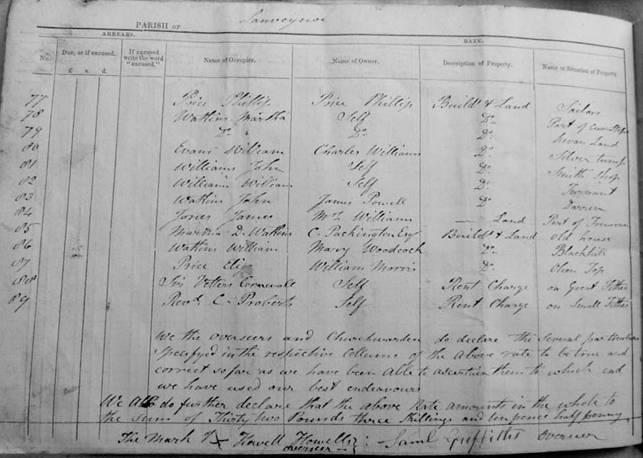 PARISH OF Lanveynoe
ARREARS. RATE.
No. Due, or if excused, If excused write the word "excused." Name of Occupier. Name of Owner. Description of Property. Name or Situation of Property
£ s. d.
77 Price Phillip Price Phillip Build^s & Land
78 Watkins Martha Self Do Part of
79 Do Do Do Land
80 Evans William Charles Williams Do
81 Williams John Self Do Smith Shop
82 Williams William Self Do
83 Watkins John James Powell Do
84 Jones James Mrs Williams — Land Part of
85 Martha D. Watkins C. Packington Esq Build^s & Land old house
86 Watkins William Mary Woodcock Do Blackhill
87 Price Eliz William Morris Do Olchon Top
88 Sir Velters Cornewall Self Rent Charge on Great Tithes
89 Revd C. Probert Self Rent Charge on Small Tithes
We the overseers and Churchwarden do declare the several particulars
specifyd in the respective collumns of the above rate to be true and
correct so far as we have been able to ascertain them to which end
we have used our best endeavours
We do further declare that the above Rate amounts in the whole to
the sum of Thirty two Pounds three Shillings and ten pence half penny
The Mark of X Howell Howells overseer Saml Griffiths overseer